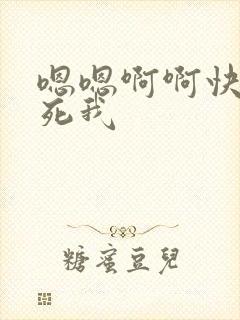 嗯嗯啊啊快
死我
糖蜜豆兒